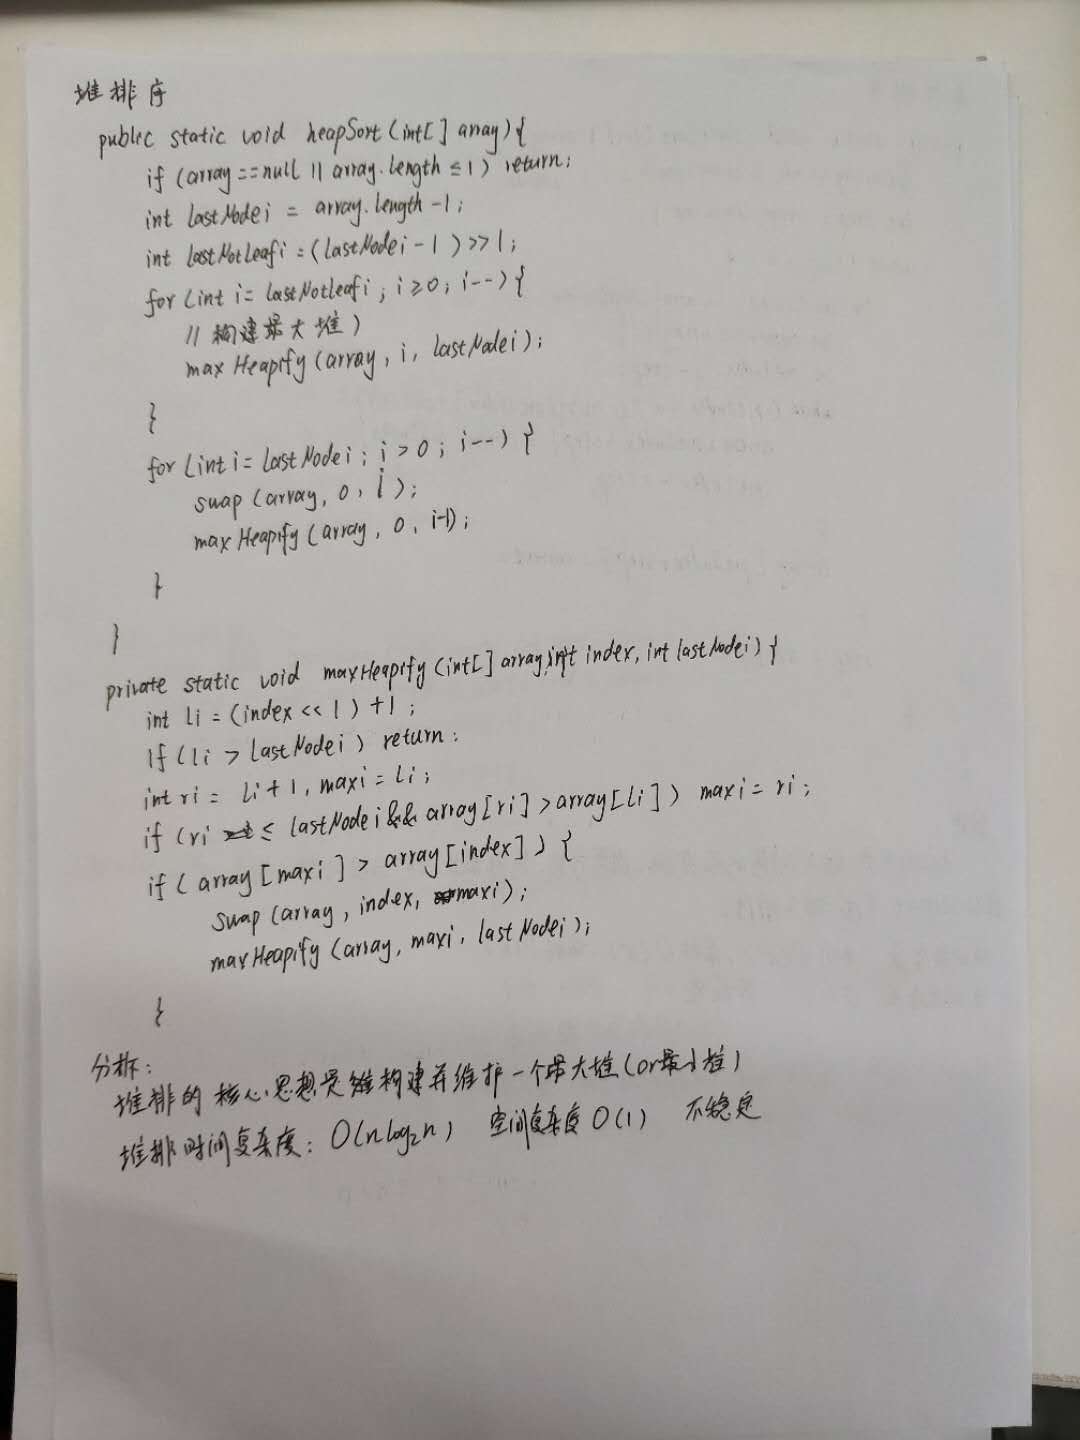 堆排序
public static void heapSort(int[] array){
if (array==null || array.length ≤ 1) return;
int lastNodei = array.length-1;
int lastNotLeafi = (lastNodei - 1) >> 1;
for (int i = lastNotleafi ; i ≥ 0; i--) {
// 构建最大堆)
maxHeapify (array, i, lastNodei);
}
for (int i = lastNodei ; i > 0 ; i--) {
swap (array, 0, i);
maxHeapify (array, 0, i-1);
}
}
private static void maxHeapify (int[] array, int index, int lastNodei) {
int li = (index << 1) +1 ;
If (li > lastNodei) return;
int ri = li+1, maxi = li;
if (ri ≤ lastNodei && array[ri] > array[li]) maxi = ri;
if ( array[maxi] > array[index]) {
swap (array, index, maxi);
maxHeapify (array, maxi, lastNodei);
}
分析:
堆排的核心思想是构建并维护一个最大堆(or最小堆)
堆排时间复杂度: O(nlog₂n) 空间复杂度 O(1) 不稳定